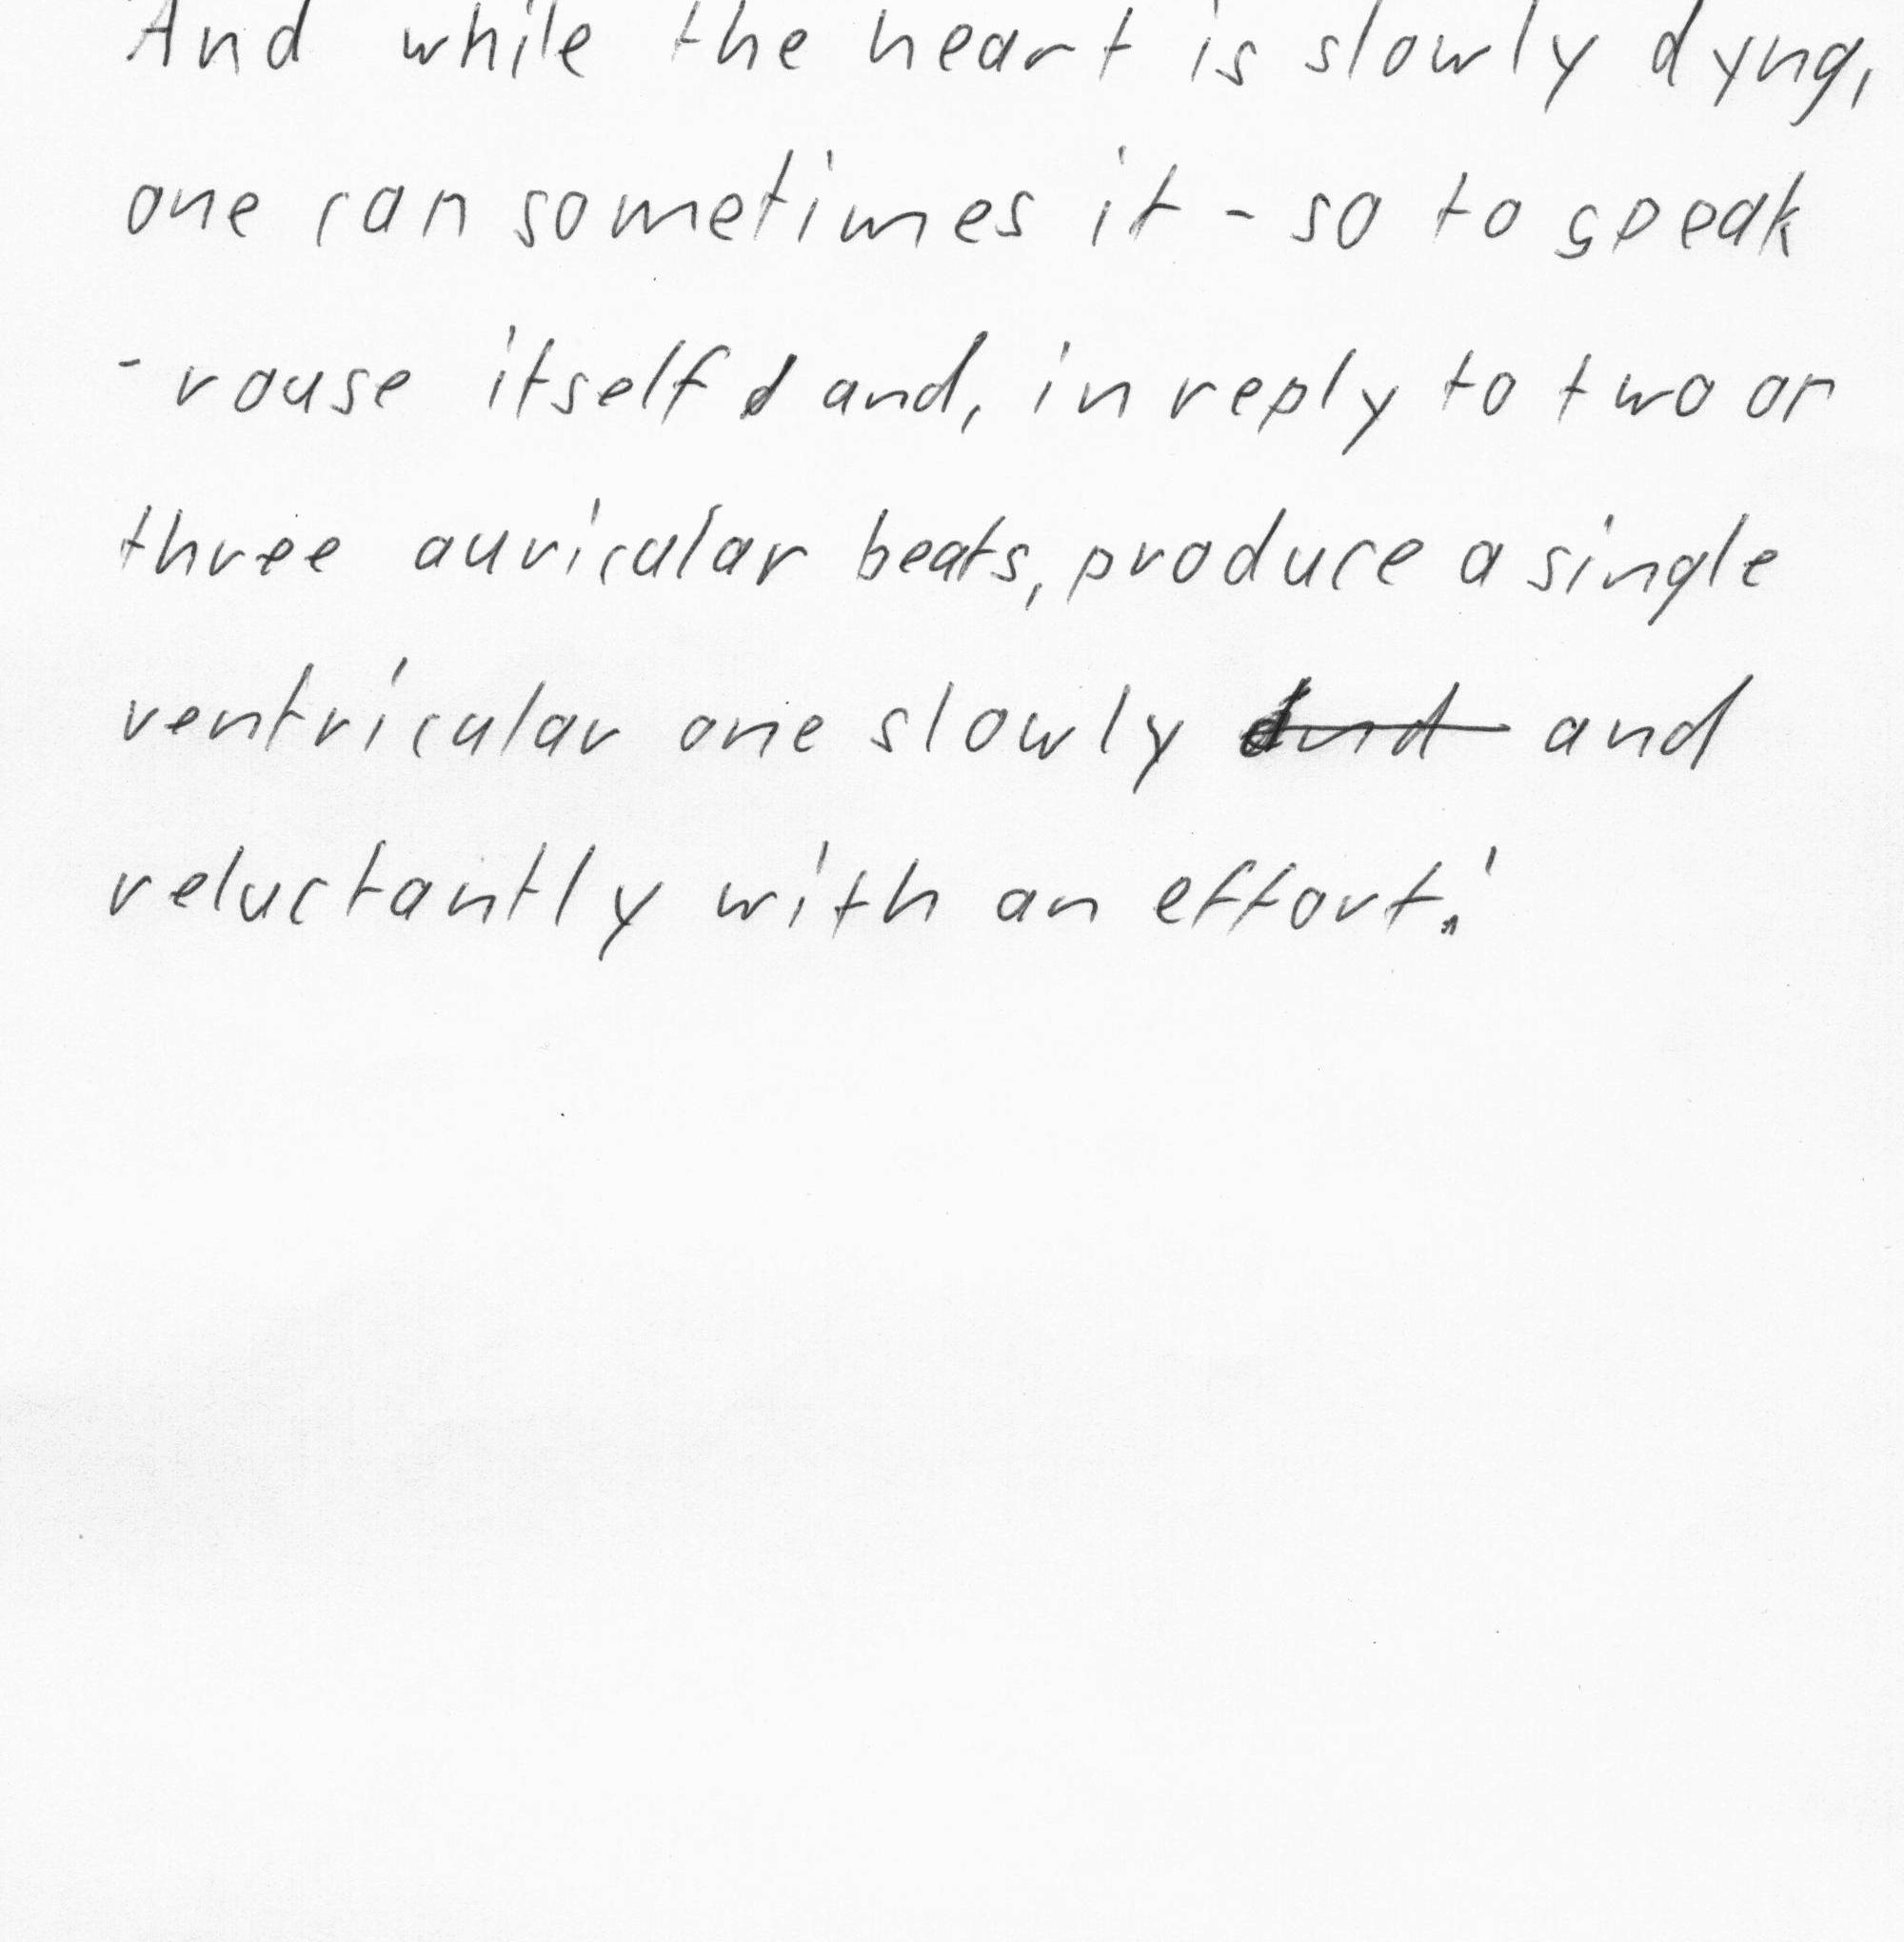 'And while the heart is slowly dyng,
one can sometimes it - so to speak
- rouse itself and, in reply to two or
three auricular beats, produce a single
ventricular one slowly and
reluctantly with an effort.'